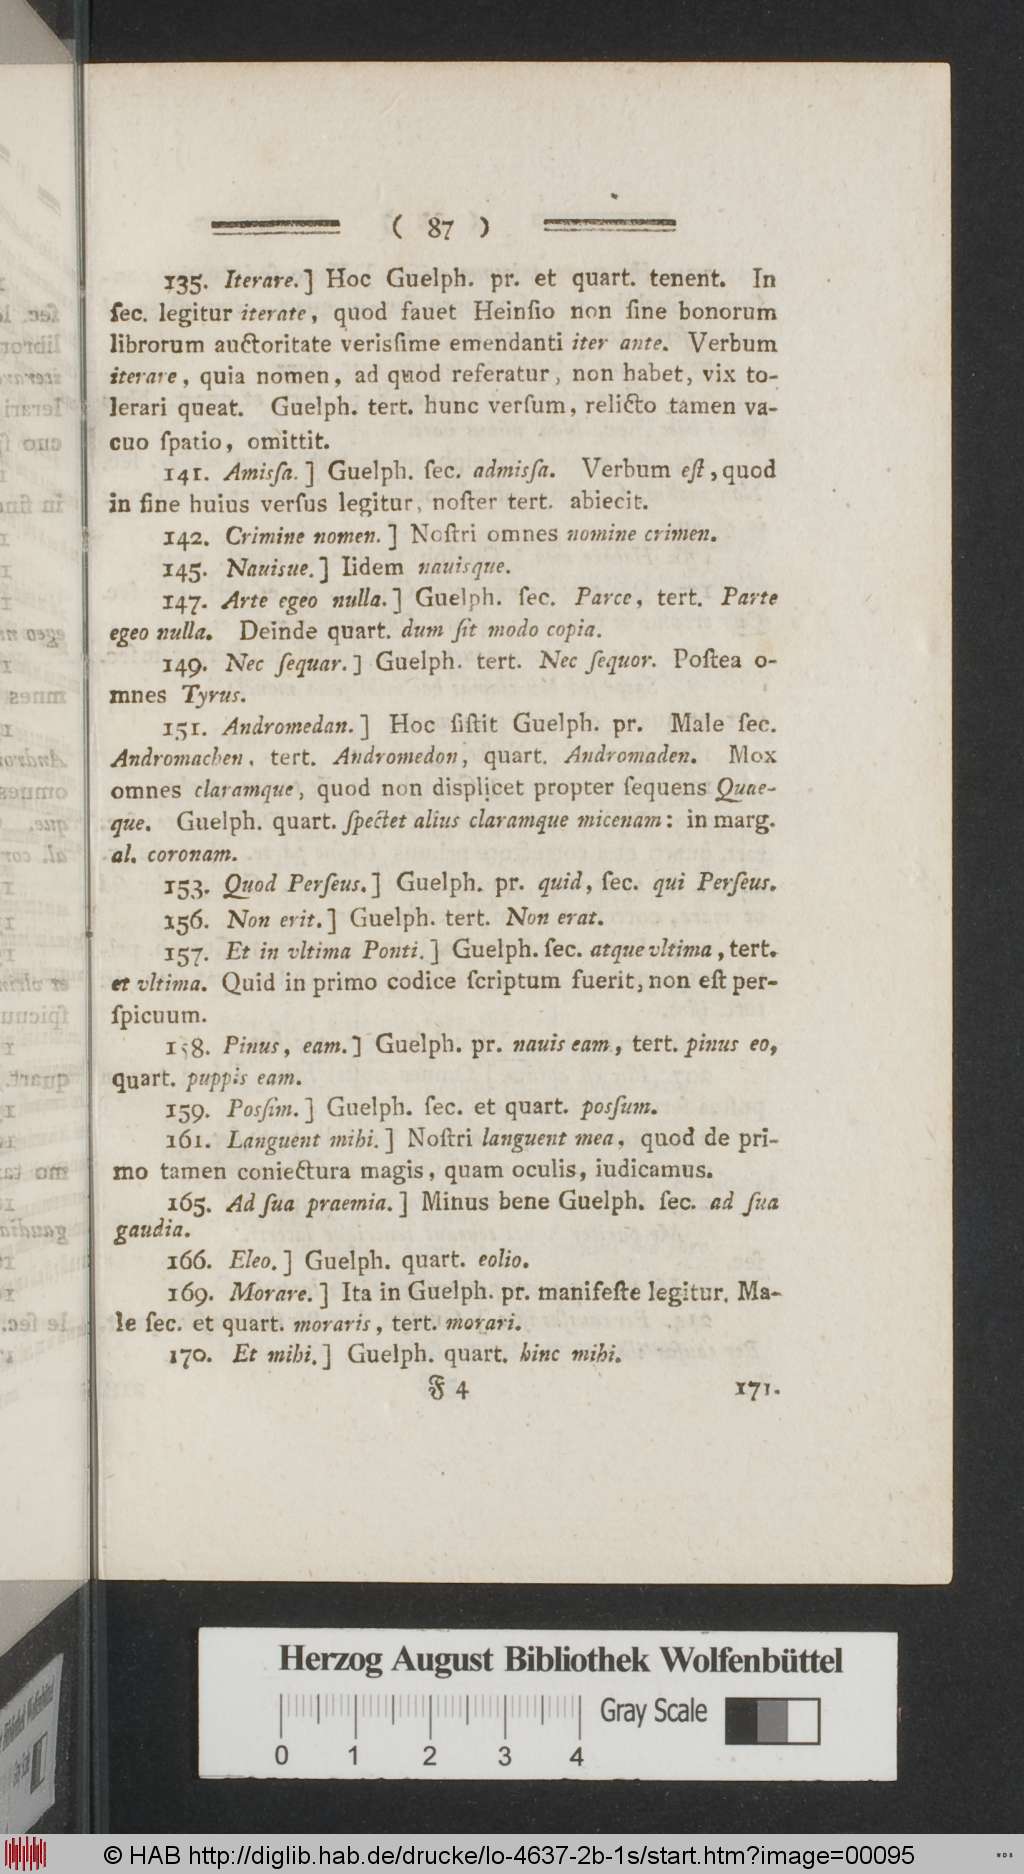 ( 87 )
135. Iterare.] Hoc Guelph. pr. et quart. tenent. In
ſec. legitur iterate, quod fauet Heinſio non ſine bonorum
librorum auctoritate verisſime emendanti iter ante. Verbum
iterare, quia nomen, ad quod referatur, non habet, vix to-
lerari queat. Guelph. tert. hunc verſum, relicto tamen va-
cuo ſpatio, omittit.
141. Amisſa.] Guelph. ſec. admisſa. Verbum eſt, quod
in fine huius verſus legitur, noſter tert. abiecit.
142. Crimine nomen.] Noſtri omnes nomine crimen.
145. Nauisue.] Iidem nauisque.
147. Arte egeo nulla.] Guelph. ſec. Parce, tert. Parte
egeo nulla. Deinde quart. dum ſit modo copia.
149. Nec ſequar.] Guelph. tert. Nec ſequor. Poſtea o-
mnes Tyrus.
151. Andromedan.] Hoc ſiſtit Guelph. pr. Male ſec.
Andromachen, tert. Andromedon, quart. Andromaden. Mox
omnes claramque, quod non displicet propter ſequens Quae-
que. Guelph. quart. ſpectet alius claramque micenam: in marg.
al. coronam.
153. Quod Perſeus.] Guelph. pr. quid, ſec. qui Perſeus.
156. Non erit.] Guelph. tert. Non erat.
157. Et in vltima Ponti.] Guelph. ſec. atque vltima, tert.
et vltima. Quid in primo codice ſcriptum fuerit, non eſt per-
ſpicuum.
158. Pinus, eam.] Guelph. pr. nauis eam, tert. pinus eo,
quart. puppis eam.
159. Posſim.] Guelph. ſec. et quart. posſum.
161. Languent mihi.] Noſtri languent mea, quod de pri-
mo tamen coniectura magis, quam oculis, iudicamus.
165. Ad ſua praemia.] Minus bene Guelph. ſec. ad ſua
gaudia.
166. Eleo.] Guelph. quart. eolio.
169. Morare.] Ita in Guelph. pr. manifeſte legitur. Ma-
le ſec. et quart. moraris, tert. morari.
170. Et mihi.] Guelph. quart. hinc mihi.
F 4 171.
Herzog August Bibliothek Wolfenbüttel
Gray Scale
0 1 2 3 4
© HAB http://diglib.hab.de/drucke/lo-4637-2b-1s/start.htm?image=00095